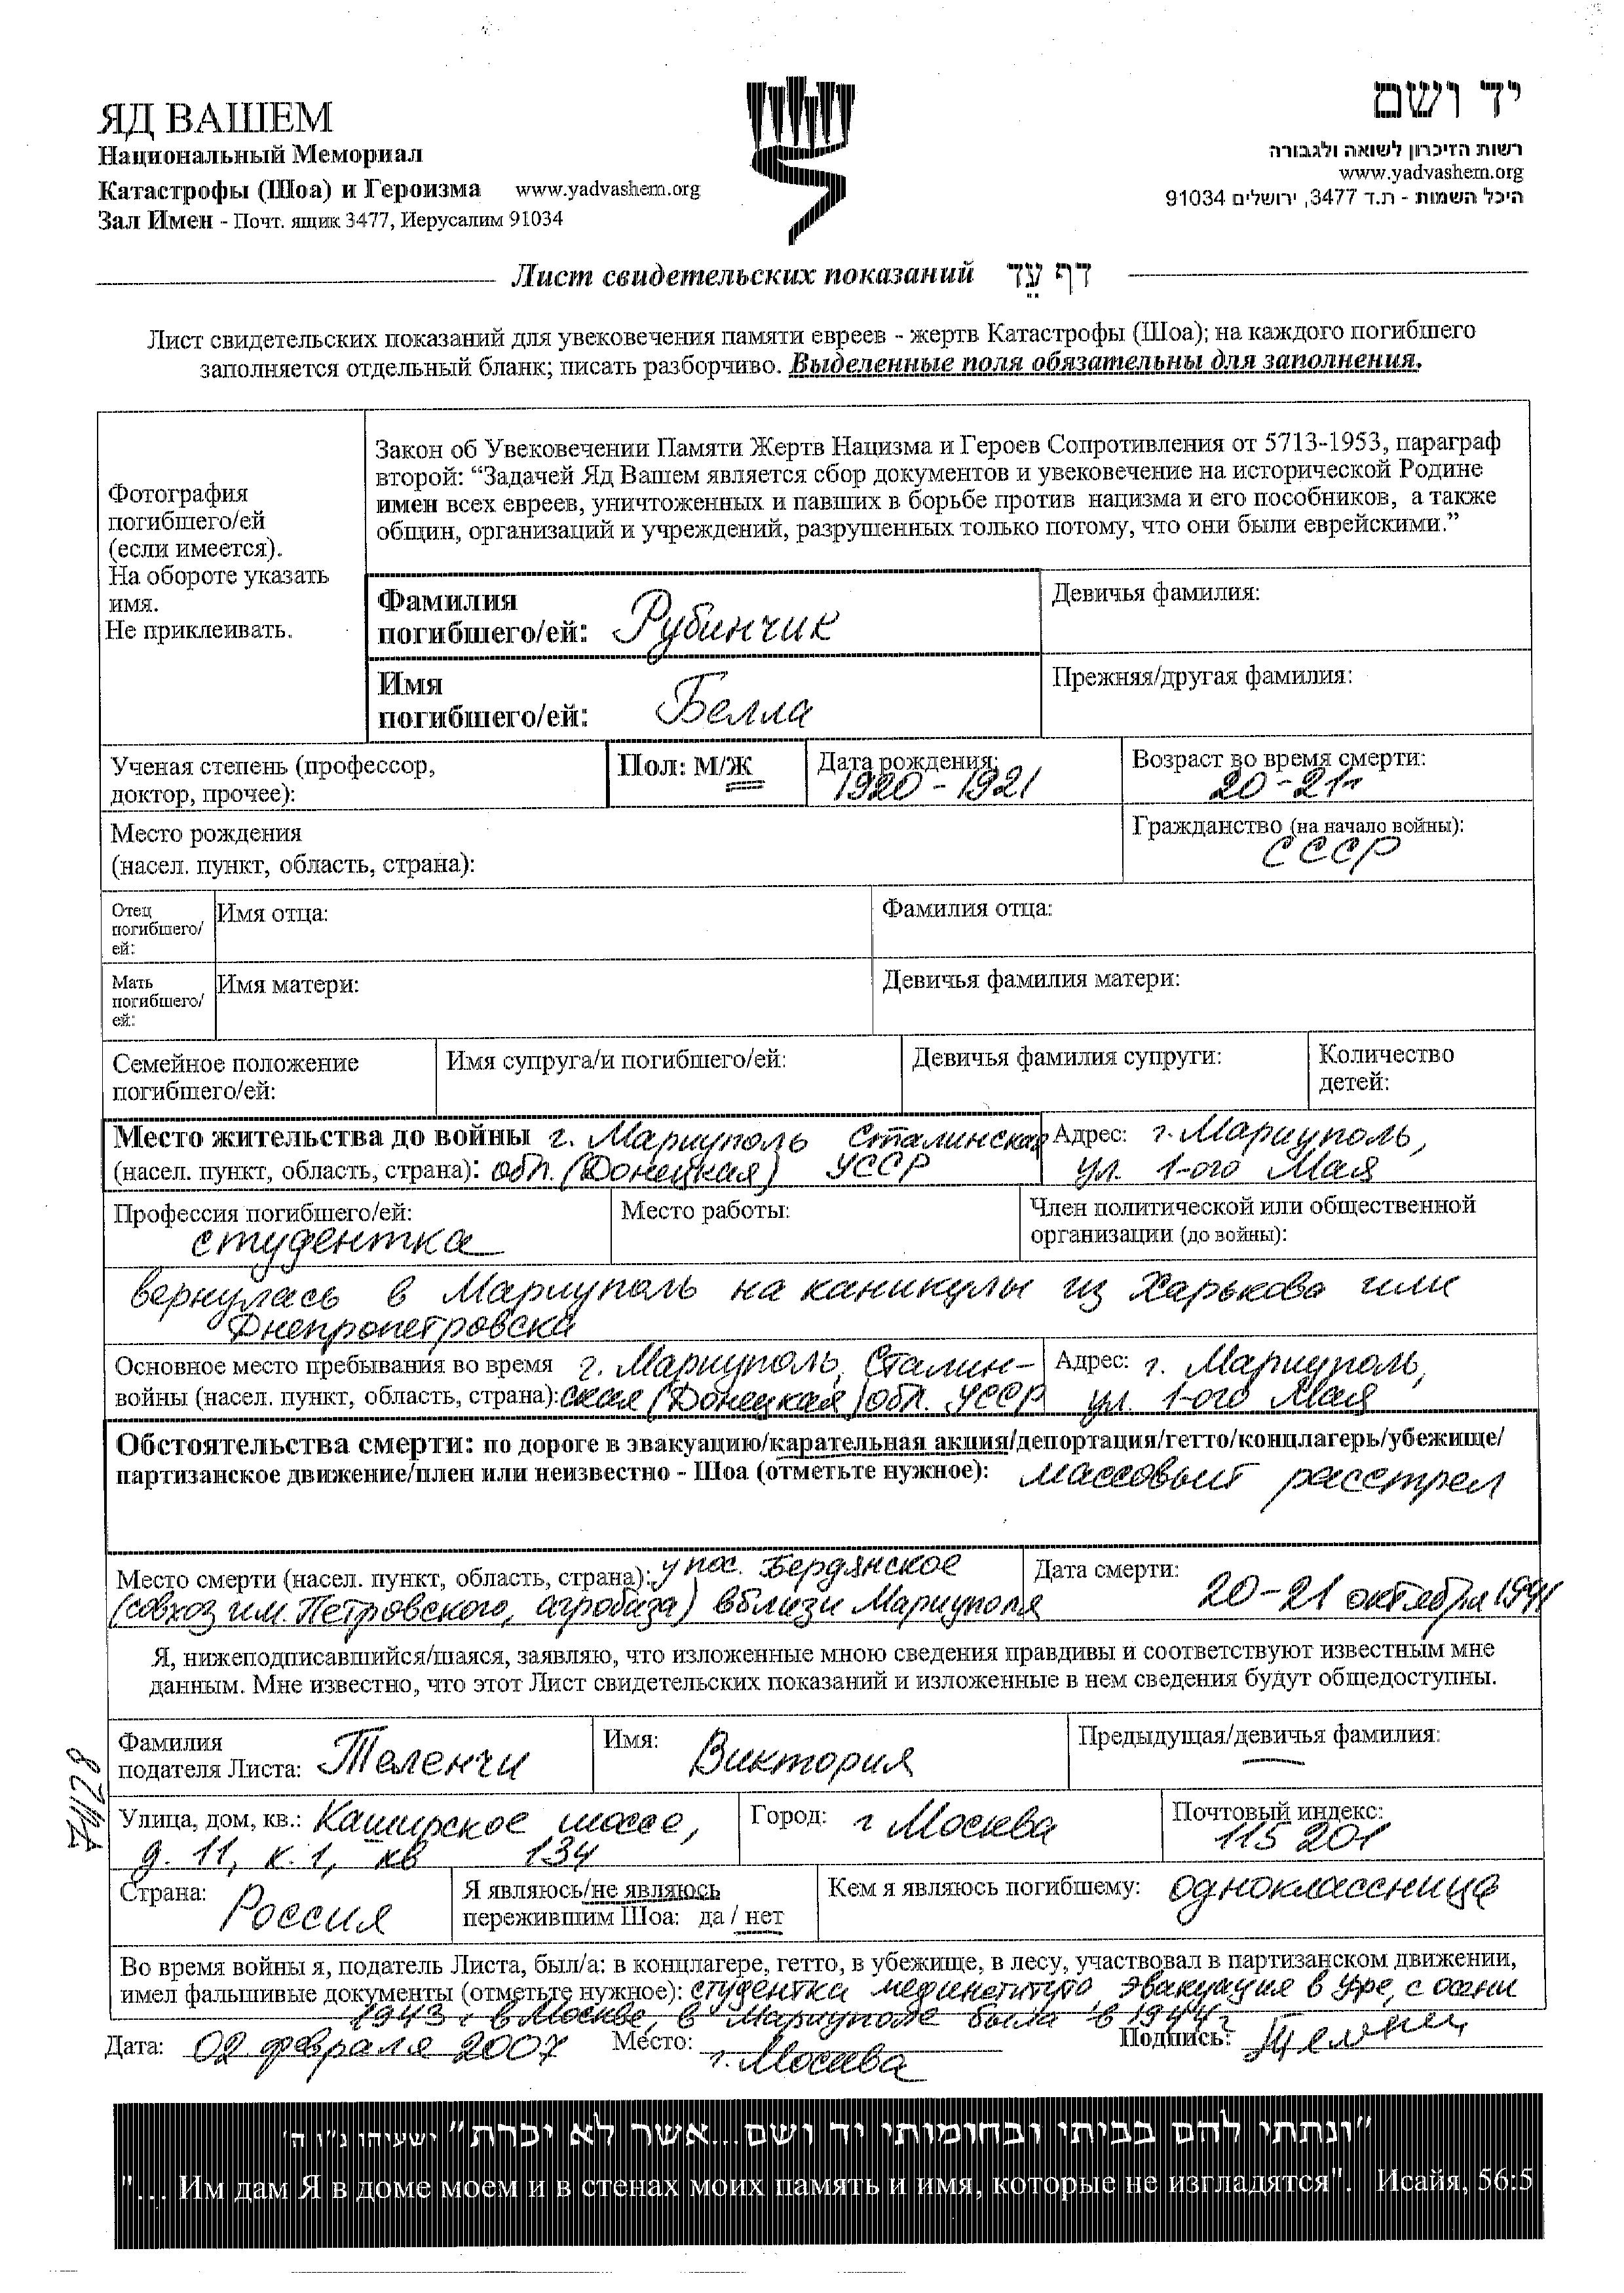 ЯД ВАШЕМ
Национальный Мемориал
Катастрофы (Шоа) и Героизма www.yadvashem.org
Зал Имен - Почт. ящик 3477, Иерусалим 91034
יד ושם
רשות הזיכרון לשואה ולגבורה
www.yadvashem.org
היכל השמות - ת.ד 3477, ירושלים 91034
Лист свидетельских показаний דף עֵד
Лист свидетельских показаний для увековечения памяти евреев - жертв Катастрофы (Шоа); на каждого погибшего
заполняется отдельный бланк; писать разборчиво. Выделенные поля обязательны для заполнения.
Фотография
погибшего/ей
(если имеется).
На обороте указать
имя.
Не приклеивать.
Закон об Увековечении Памяти Жертв Нацизма и Героев Сопротивления от 5713-1953, параграф
второй: “Задачей Яд Вашем является сбор документов и увековечение на исторической Родине
имен всех евреев, уничтоженных и павших в борьбе против нацизма и его пособников, а также
общин, организаций и учреждений, разрушенных только потому, что они были еврейскими.”
Фамилия
погибшего/ей: Рубинчик
Девичья фамилия:
Имя
погибшего/ей: Белла
Прежняя/другая фамилия:
Ученая степень (профессор,
доктор, прочее):
Пол: М/Ж
Дата рождения:
1920-1921
Возраст во время смерти:
20-21г
Место рождения
(насел. пункт, область, страна):
Гражданство (на начало войны):
СССР
Отец
погибшего/
ей:
Имя отца:
Фамилия отца:
Мать
погибшего/
ей:
Имя матери:
Девичья фамилия матери:
Семейное положение
погибшего/ей:
Имя супруга/и погибшего/ей:
Девичья фамилия супруги:
Количество
детей:
Место жительства до войны г. Мариуполь Сталинская
(насел. пункт, область, страна): обл. (Донецкая) УССР
Адрес: г. Мариуполь,
ул. 1-ого Мая
Профессия погибшего/ей:
студентка
Место работы:
Член политической или общественной
организации (до войны):
вернулась в Мариуполь на каникулы из Харькова или
Днепропетровска
Основное место пребывания во время г. Мариуполь, Сталин-
войны (насел. пункт, область, страна): ская (Донецкая) обл. УССР
Адрес: г. Мариуполь,
ул. 1-ого Мая
Обстоятельства смерти: по дороге в эвакуацию/карательная акция/депортация/гетто/концлагерь/убежище/
партизанское движение/плен или неизвестно - Шоа (отметьте нужное): массовый расстрел
Место смерти (насел. пункт, область, страна): у пос. Бердянское
(совхоз им. Петровского, агробаза) вблизи Мариуполя
Дата смерти:
20-21 октября 1941
Я, нижеподписавшийся/шаяся, заявляю, что изложенные мною сведения правдивы и соответствуют известным мне
данным. Мне известно, что этот Лист свидетельских показаний и изложенные в нем сведения будут общедоступны.
Фамилия
подателя Листа: Теленчи
Имя: Виктория
Предыдущая/девичья фамилия:
—
Улица, дом, кв.: Каширское шоссе,
д. 11, к. 1, кв 134
Город: г Москва
Почтовый индекс:
115 201
Страна:
Россия
Я являюсь/не являюсь
пережившим Шоа: да / нет
Кем я являюсь погибшему: одноклассница
Во время войны я, податель Листа, был/а: в концлагере, гетто, в убежище, в лесу, участвовал в партизанском движении,
имел фальшивые документы (отметьте нужное): студентка мединститута, эвакуация в Уфе, с осени
1943 г. в Москве, в Мариуполе была в 1944 г
Дата: 02 февраля 2007 Место: г. Москва Подпись:
"ונתתי להם בביתי ובחומותי יד ושם...אשר לא יכרת" ישעיהו נ"ו ה'
"... Им дам Я в доме моем и в стенах моих память и имя, которые не изгладятся". Исайя, 56:5